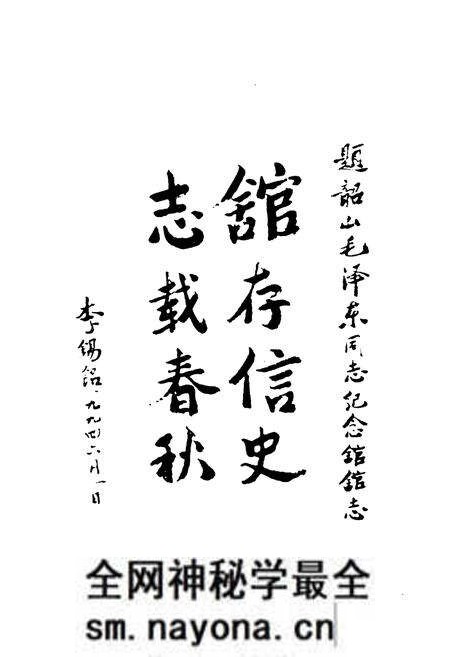 题韶山毛泽东同志纪念馆馆志
舘存信史
志载春秋
李锡铭一九九四六月一日
全网神秘学最全
sm.nayona.cn